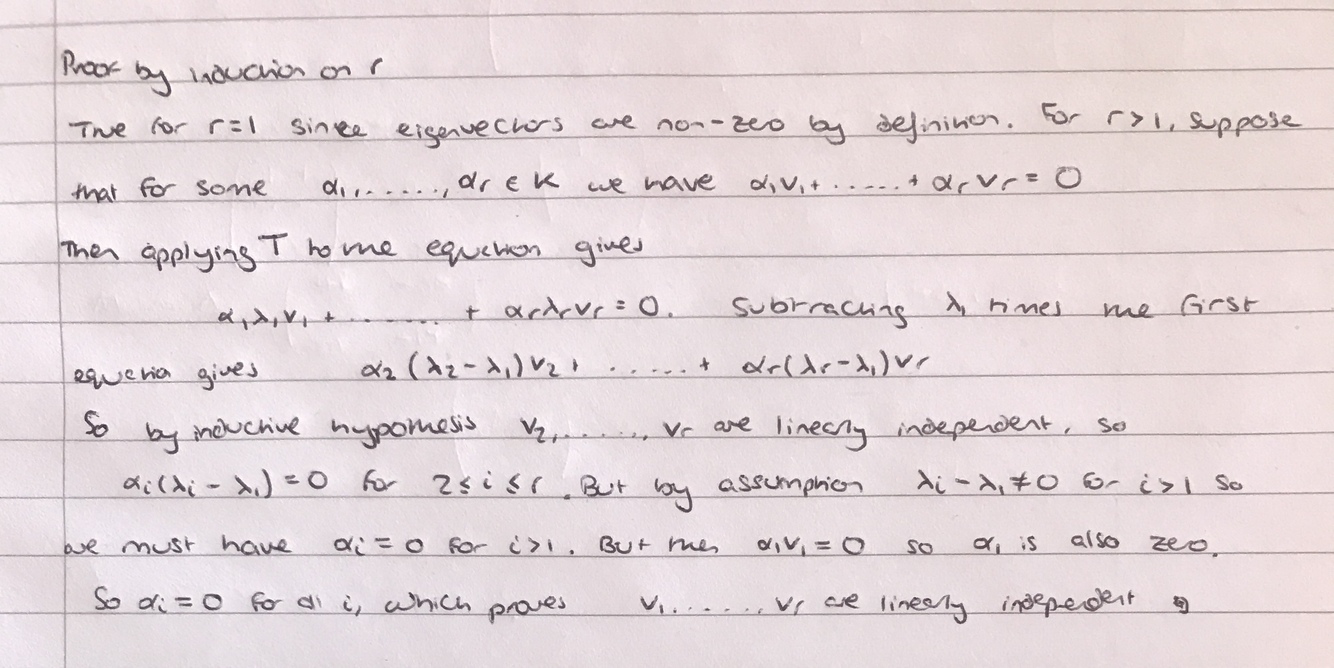 Proof by induction on r
True for r=1 since eigenvectors are non-zero by definition. For r>1, suppose
that for some α₁,......,αᵣ ∈ K we have α₁v₁+......+αᵣvᵣ=0
Then applying T to the equation gives
α₁λ₁v₁+........+ αᵣλᵣvᵣ=0. Subtracting λ₁ times the first
equation gives α₂(λ₂-λ₁)v₂+......+ αᵣ(λᵣ-λ₁)vᵣ
So by inductive hypothesis v₂,......., vᵣ are linearly independent, so
αᵢ(λᵢ-λ₁)=0 for 2≤i≤r. But by assumption λᵢ-λ₁≠0 for i>1 so
we must have αᵢ=0 for i>1. But then α₁v₁=0 so α₁ is also zero.
So αᵢ=0 for all i, which proves v₁......., vᵣ are linearly independent